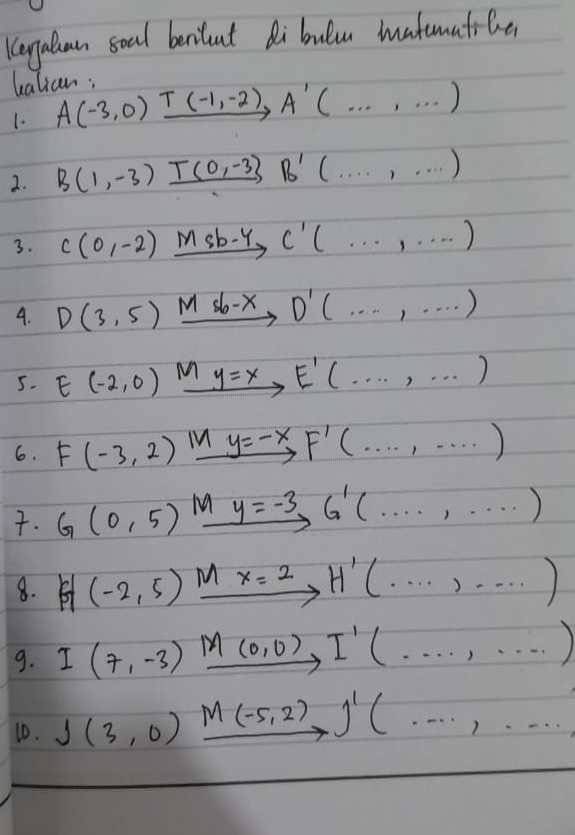 Kerjakan soal berikut di buku matematika
kalian :
1. A(-3,0) T(-1,-2) A'( ... , ... )
2. B(1,-3) T(0,-3) B'( .... , .... )
3. C(0,-2) M sb-Y C'( ... , .... )
4. D(3,5) M sb-X D'( ... , .... )
5. E (-2,0) M y=x E'( .... , ... )
6. F(-3,2) M y=-x F'( .... , .... )
7. G (0,5) M y=-3 G'( .... , .... )
8. H (-2,5) M x=2 H'( .... , .... )
9. I (7,-3) M (0,0) I'( .... , .... )
10. J(3,0) M(-5,2) J'( .... , ....